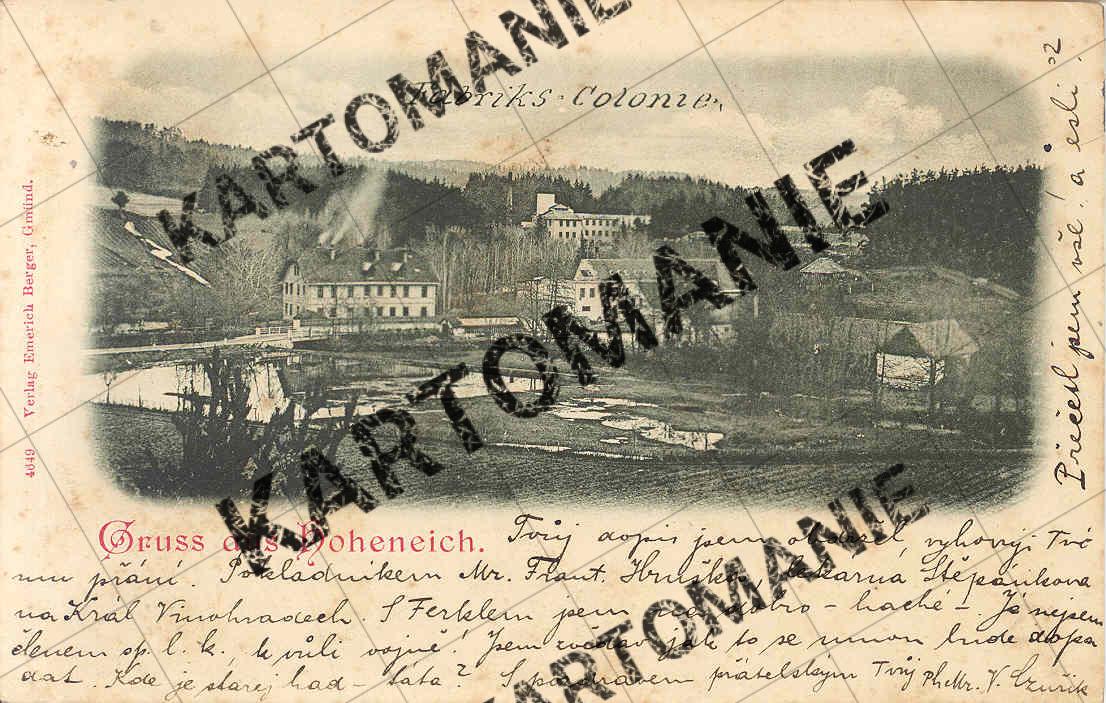 Fabriks-Colonie.
4649 Verlag Emerich Berger, Gmünd.
Gruss aus Hoheneich.
Tvůj dopis jsem obdržel, vyhověji Tvé
mu přání. Pokladníkem Mr. Frant. Hruška, lékárna Štěpánkova
na Král Vinohradech. S Ferklem jsem nedobro - haché -. Já nejsem
členem sp. l. k. k vůli vojně! Jsem zvědav jak to se mnou bude dopa
dat. Kde je starej had - táta? S pozdravem přátelským Tvůj PhMr. V.
Přečetl jsem vše! a
KARTOMANIE
KARTOMANIE
KARTOMANIE
KARTOMANIE